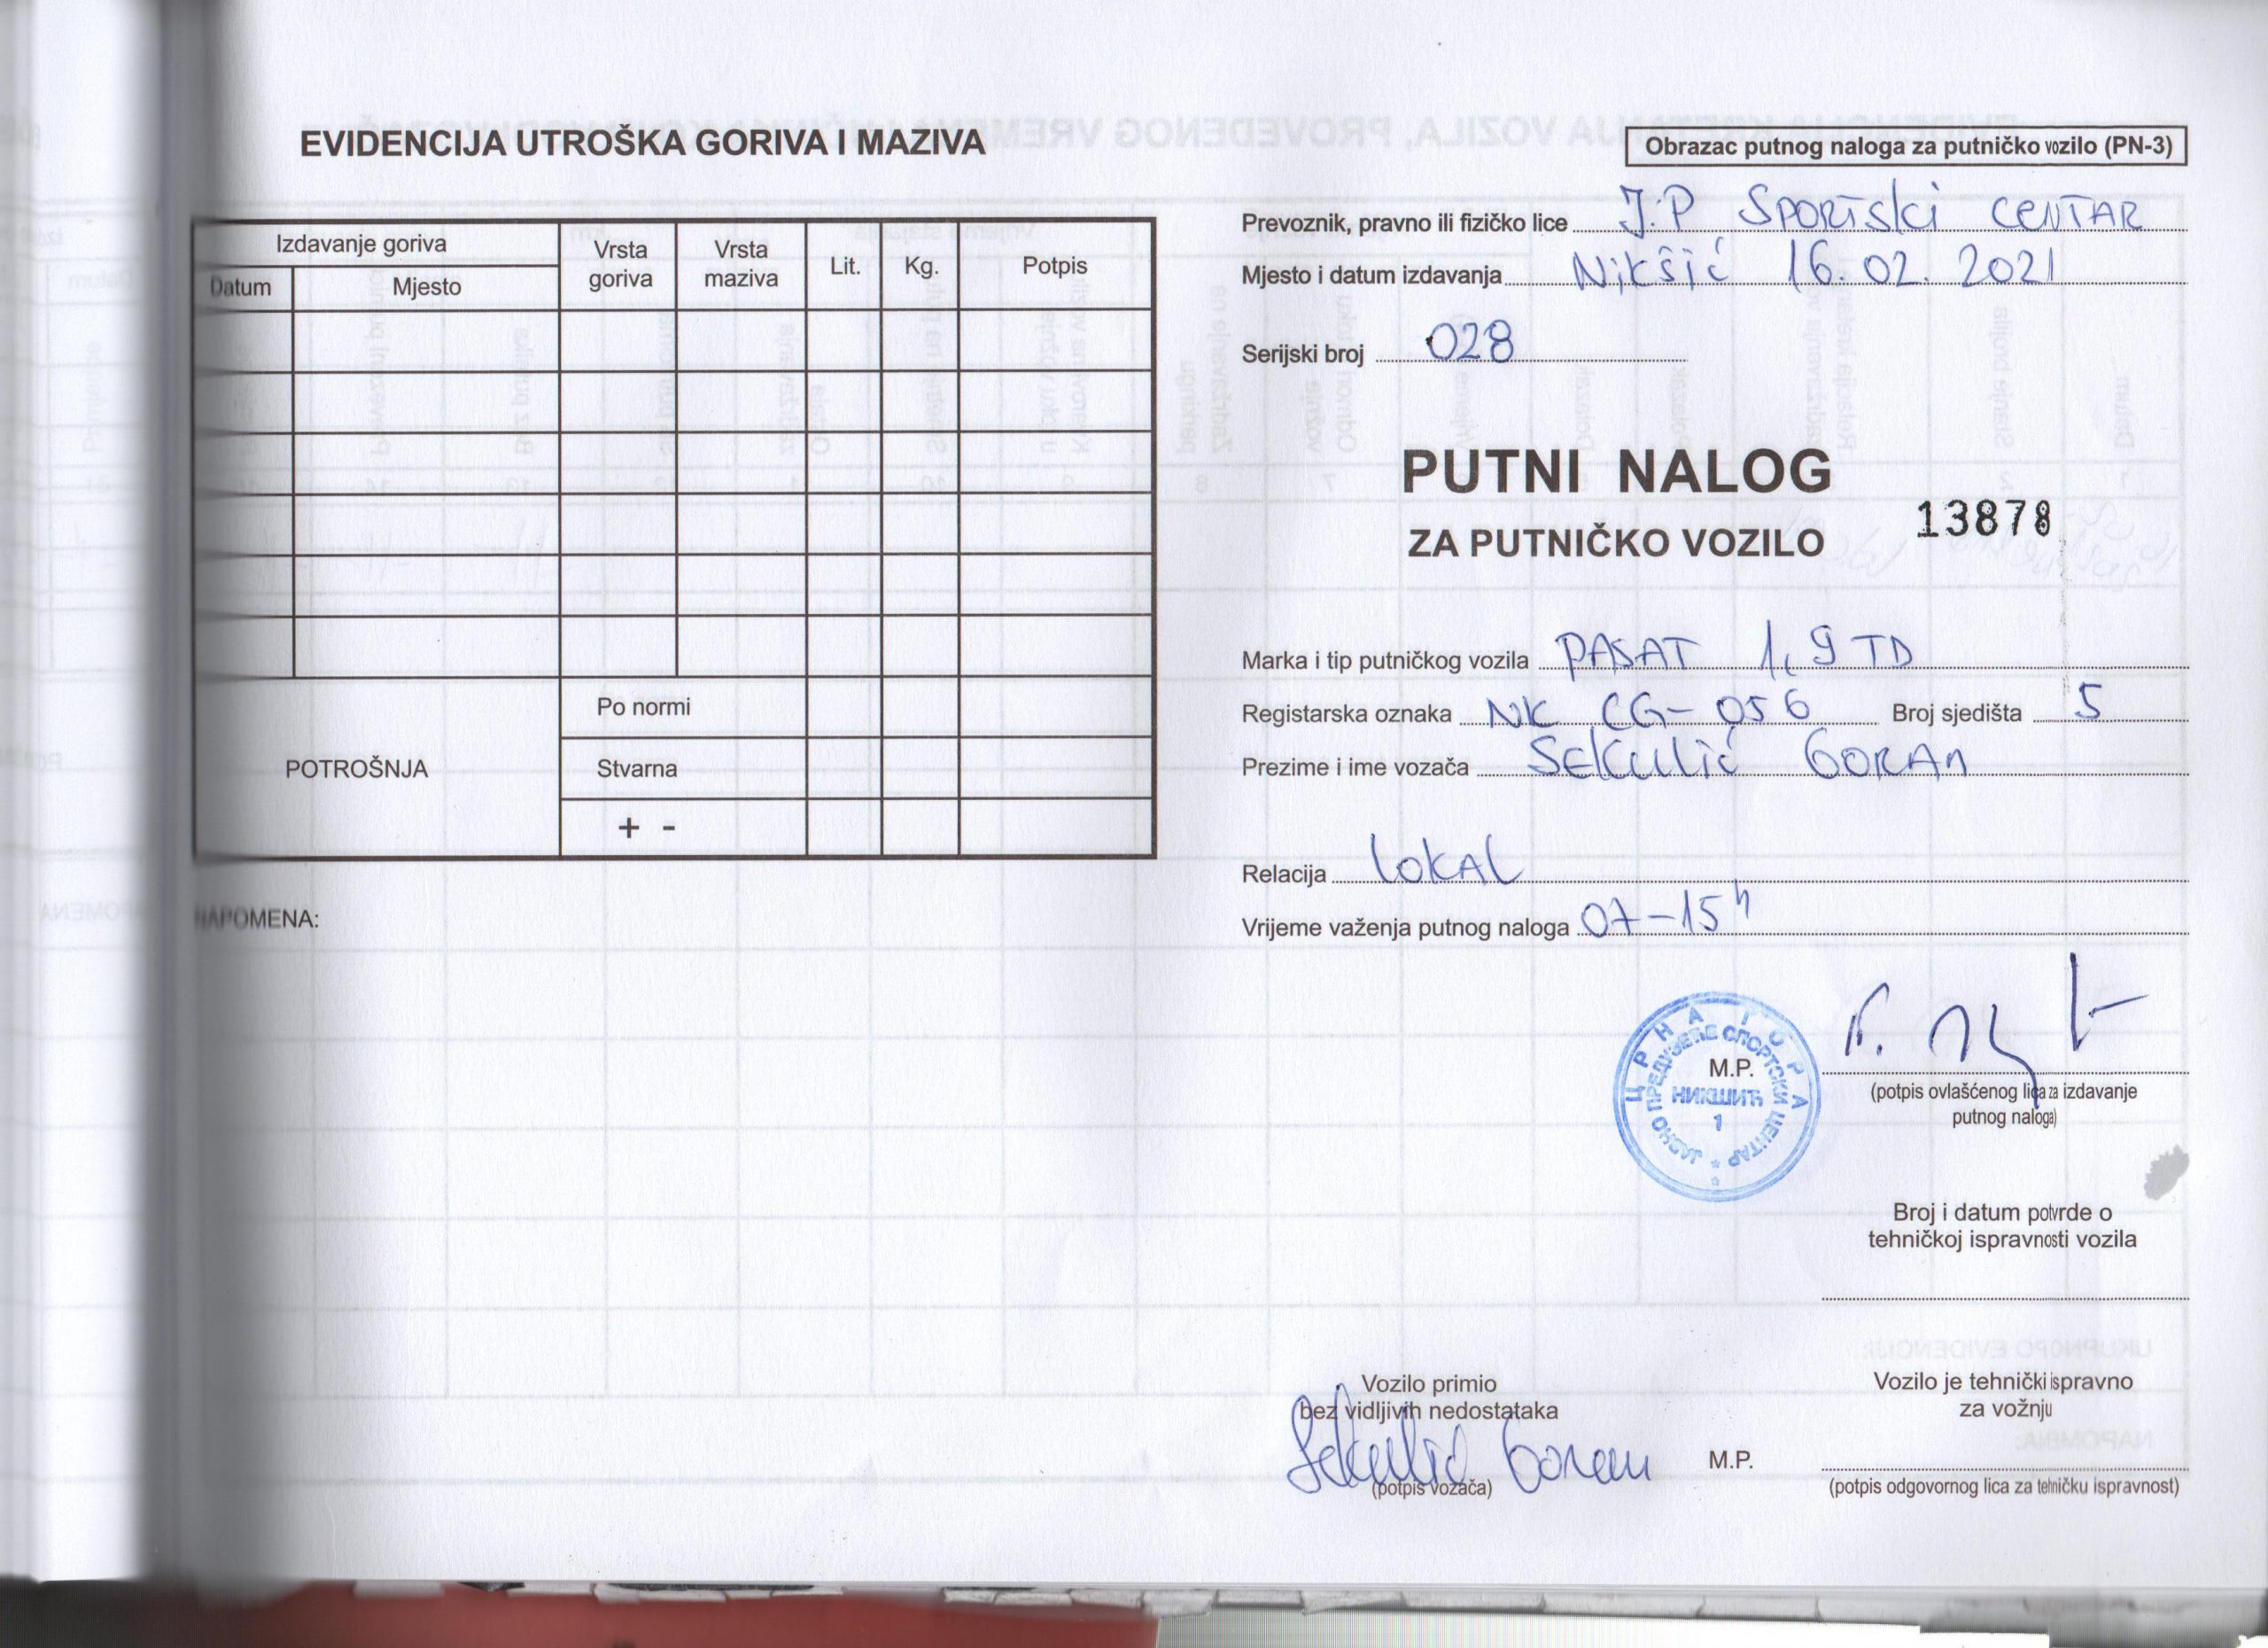 EVIDENCIJA UTROŠKA GORIVA I MAZIVA
Izdavanje goriva
Datum
Mjesto
Vrsta goriva
Vrsta maziva
Lit.
Kg.
Potpis
POTROŠNJA
Po normi
Stvarna
+ -
NAPOMENA:
Obrazac putnog naloga za putničko vozilo (PN-3)
Prevoznik, pravno ili fizičko lice J.P Sportski centar
Mjesto i datum izdavanja Nikšić 16.02.2021
Serijski broj 028
PUTNI NALOG
ZA PUTNIČKO VOZILO
13878
Marka i tip putničkog vozila PASAT 1,9 TD
Registarska oznaka NK CG-056 Broj sjedišta 5
Prezime i ime vozača Sekulić Goran
Relacija lokal
Vrijeme važenja putnog naloga 07-15h
ЦРНА ГОРА
ЈАВНО ПРЕДУЗЕЋЕ СПОРТСКИ ЦЕНТАР
М.P.
НИКШИЋ
1
(potpis ovlašćenog lica za izdavanje
putnog naloga)
Broj i datum potvrde o
tehničkoj ispravnosti vozila
Vozilo primio
bez vidljivih nedostataka
Sekulić Goran
(potpis vozača)
M.P.
Vozilo je tehnički ispravno
za vožnju
(potpis odgovornog lica za tehničku ispravnost)